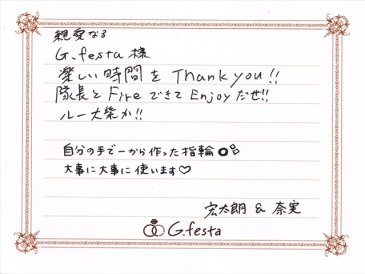 親愛なる
G.festa 様
楽しい時間を Thank you!!
隊長と Fire できて Enjoy だぜ!!
ルー大柴か!!
自分の手で一から作った指輪
大事に大事に使います♡
宏太朗 & 奈実
G.festa